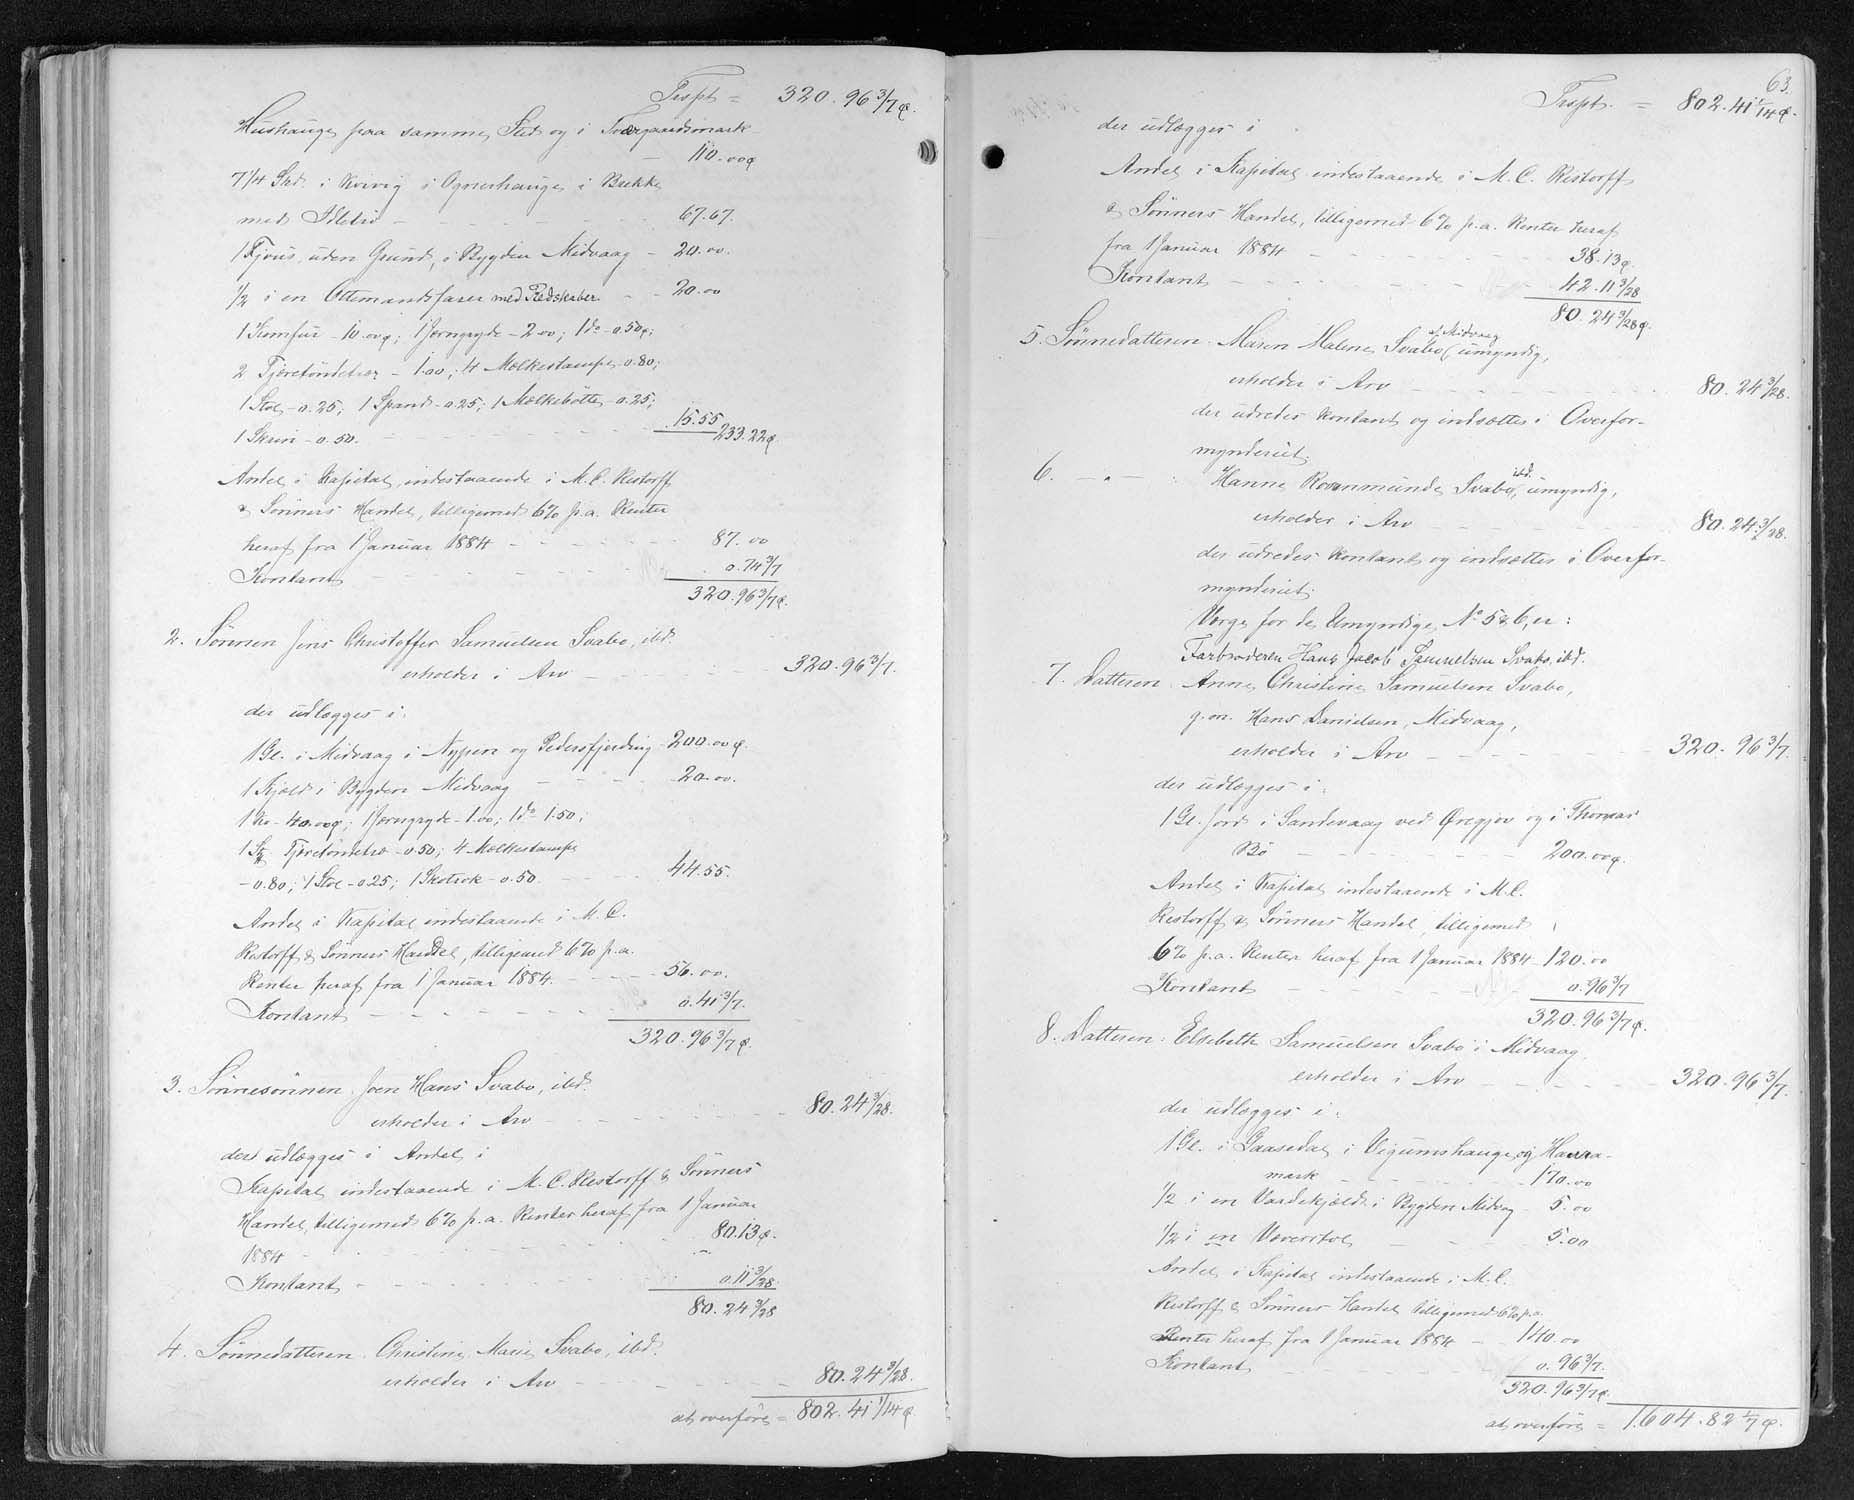 Trspt = 320.96 3/7 ø.
Hushauge paa samme Sted og i Tværgaardsmark
— 110.00ø
7 1/4 Skd. i Kvivig i Ognerhauge i Brekke
med Idletrio — 67.67.
1 Fjøus, uden Grund, i Bygden Midvaag — 20.00.
1/2 i en Ottemandsfarer med Redskaber — 20.00
1 Komfur - 10.00ø; 1 Jerngryde - 2.00; 1 do - 0.50ø;
2 Tjæretøndetræer - 1.00; 4 Mælkestampe - 0.80;
1 Stol - 0.25; 1 Spand - 0.25; 1 Mælkebøtte - 0.25;
1 Skrin - 0.50. — 15.55 233.22ø.
Andel i Kapital, indestaaende i M. C. Restorff
& Sønners Handel, tilligemed 6% p.a. Renter
heraf fra 1 Januar 1884 — 87.00
Kontant — 0.74 3/7
320.96 3/7 ø.
2. Sønnen Jens Christoffer Samuelsen Svabo, ibd.
erholder i Arv — 320.96 3/7.
der udlægges i:
1 Gl. i Midvaag i Nypen og Pedersfjerding - 200.00 ø.
1 Kjæld i Bygden Midvaag — 20.00.
1 Ko - 40.00ø; 1 Jerngryde - 1.00; 1 do 1.50;
1 Stk Tjæretøndetræ - 0.50; 4 Mælkestampe
- 0.80; 1 Stol - 0.25; 1 Skotrok - 0.50 — 44.55.
Andel i Kapital indestaaende i M. C.
Restorff & Sønners Handel, tilligemed 6% p.a.
Renter heraf fra 1 Januar 1884. — 56.00.
Kontant — 0.41 3/7.
320.96 3/7 ø.
3. Sønnesønnen Joen Hans Svabo, ibd.
erholder i Arv — 80.24 3/28.
der udlægges i Andel i
Kapital indestaaende i M. C. Restorff & Sønners
Handel, tilligemed 6% p.a. Renter heraf fra 1 Januar
1884 — 80.13ø.
Kontant — 0.11 3/28.
80.24 3/28
4. Sønnedatteren Christine Marie Svabo, ibd.
erholder i Arv — 80.24 3/28.
at overføre = 802.41 1/14 ø
63.
Trspt. = 802.41 1/14 ø.
der udlægges i
Andel i Kapital indestaaende i M. C. Restorff
& Sønners Handel, tilligemed 6% p.a. Renter heraf
fra 1 Januar 1884 — 38.13ø.
Kontant — 42.11 3/28
80.24 3/28 ø.
5. Sønnedatteren Maren Malene Svabo, af Midvaag umyndig,
erholder i Arv — 80.24 3/28.
der udredes kontant og indsættes i Overfor-
mynderiet.
6. — " — : Hanne Rosenmunde Svabo, ibd. umyndig,
erholder i Arv — 80.24 3/28.
der udredes kontant og indsættes i Overfor-
mynderiet.
Værge for de Umyndige, No 5 & 6, er:
Farbroderen Hans Jacob Samuelsen Svabo, ibd.
7. Datteren Anne Christine Samuelsen Svabo,
g. m. Hans Danielsen, Midvaag,
erholder i Arv — 320.96 3/7.
der udlægges i:
1 Gl. Jord i Sandevaag ved Øregjov og i Thomas
Bø — 200.00ø.
Andel i Kapital indestaaende i M. C.
Restorff & Sønners Handel, tilligemed
6% p.a. Renter heraf fra 1 Januar 1884 - 120.00
Kontant — 0.96 3/7
320.96 3/7 ø.
8. Datteren: Elsebeth Samuelsen Svabo i Midvaag
erholder i Arv — 320.96 3/7.
der udlægges i:
1 Gl. i Gaasedal i Vigumshauge og Hanna-
mark — 170.00
1/2 i en Vardekjæld i Bygden Midvag - 5.00
1/2 i en Væverstol — 5.00
Andel i Kapital indestaaende i M. C.
Restorff & Sønners Handel tilligemed 6% p.a.
Renter heraf fra 1 Januar 1884 — 140.00
Kontant — 0.96 3/7.
320.96 3/7 ø.
at overføre = 1.604.82 1/7 ø.